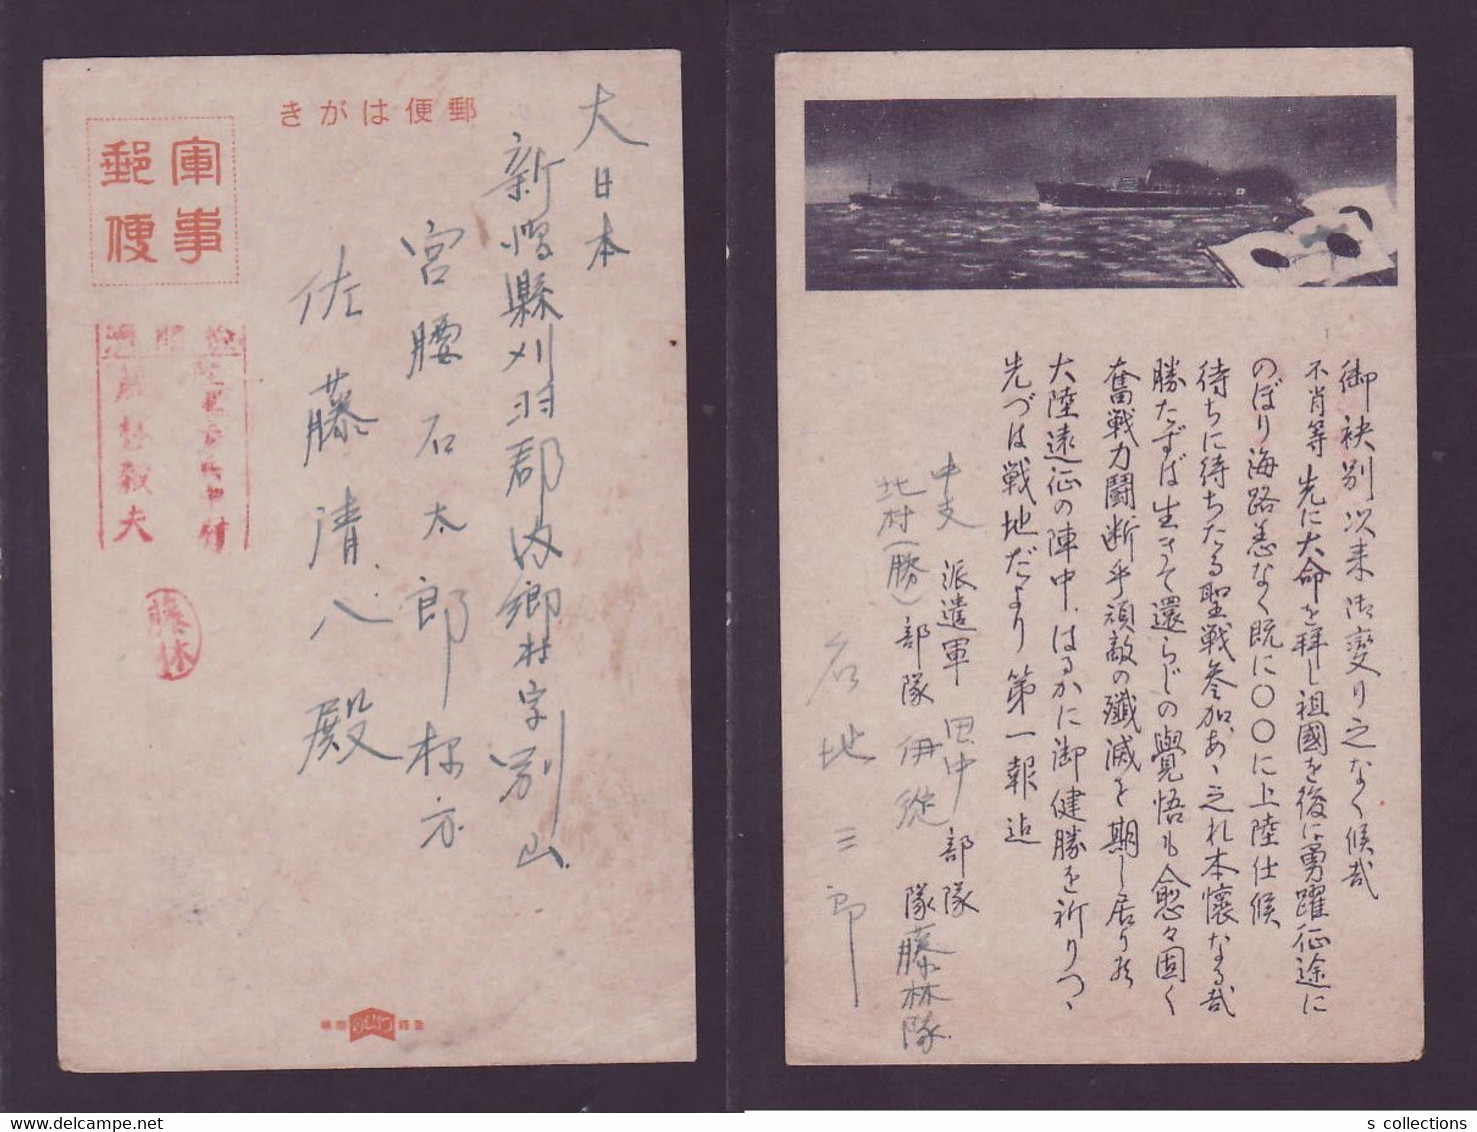 郵便はがき
軍事
郵便
大日本
新潟縣刈羽郡内郷村字別山
宮腰石太郎様方
佐藤清八殿
検閲済
藤林毅夫
藤林
御袂別以来御変り之なく候哉
不肖等先に大命を拝し祖國を後に勇躍征途に
のぼり海路恙なく既に〇〇に上陸仕候
待ちに待ちたる聖戦参加、あゝ之れ本懐なる哉
勝たずば生きて還らじの覺悟も愈々固く
奮戦力闘断乎頑敵の殲滅を期し居り候
大陸遠征の陣中、はるかに御健勝を祈りつゝ
先づは戦地だより第一報迄
中支派遣軍田中部隊
北村(勝)部隊伊從隊藤林隊
石地三郎
s collections